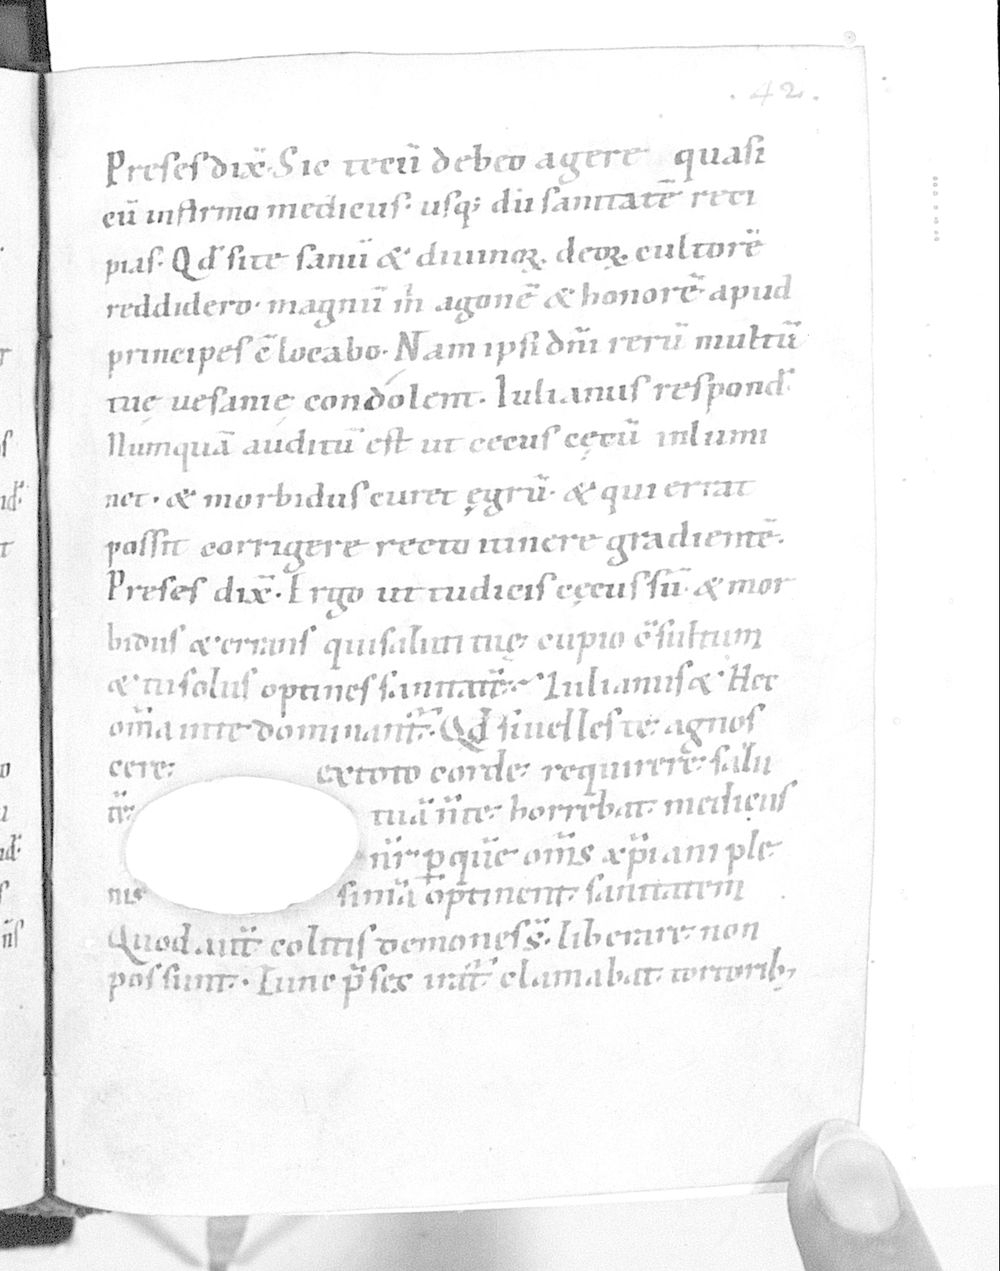 . 42 .
Preses dix̄. Sic tecū debeo agere quasi
cū infirmo medicus. usq; dū sanitatē reci
pias. Qd̄ si te sanū & diuinoꝝ. deoꝝ cultorē
reddidero. magnū in agonē & honorē apud
principes collocabo. Nam ipsi dn̄i rerū multū
tuę uesanię condolent. Iulianus respond̄.
Numquā auditū est ut cecus cęcū inlumi
net. & morbidus curet ęgrū. & qui errat
possit corrigere recto itinere gradientē.
Preses dix̄. Ergo ut tu dicis cęcus sū. & mor
bidus & errans qui saluti tuę cupio cōsultum
& tu solus optines sanitatē. Iulianus & Hec
om̄ia in te dominant̄. Qd̄ si uelles te agnos
cere. ex toto corde requirere salu
tē tuā n̄ te horrebat medicus
nr̄ p quē om̄s xp̄iani ple
nis simā optinent sanitatem
Quod aūt colitis demones s̄. liberare non
possunt. Tunc p̄ses irat᷒ clamabat tortorib;